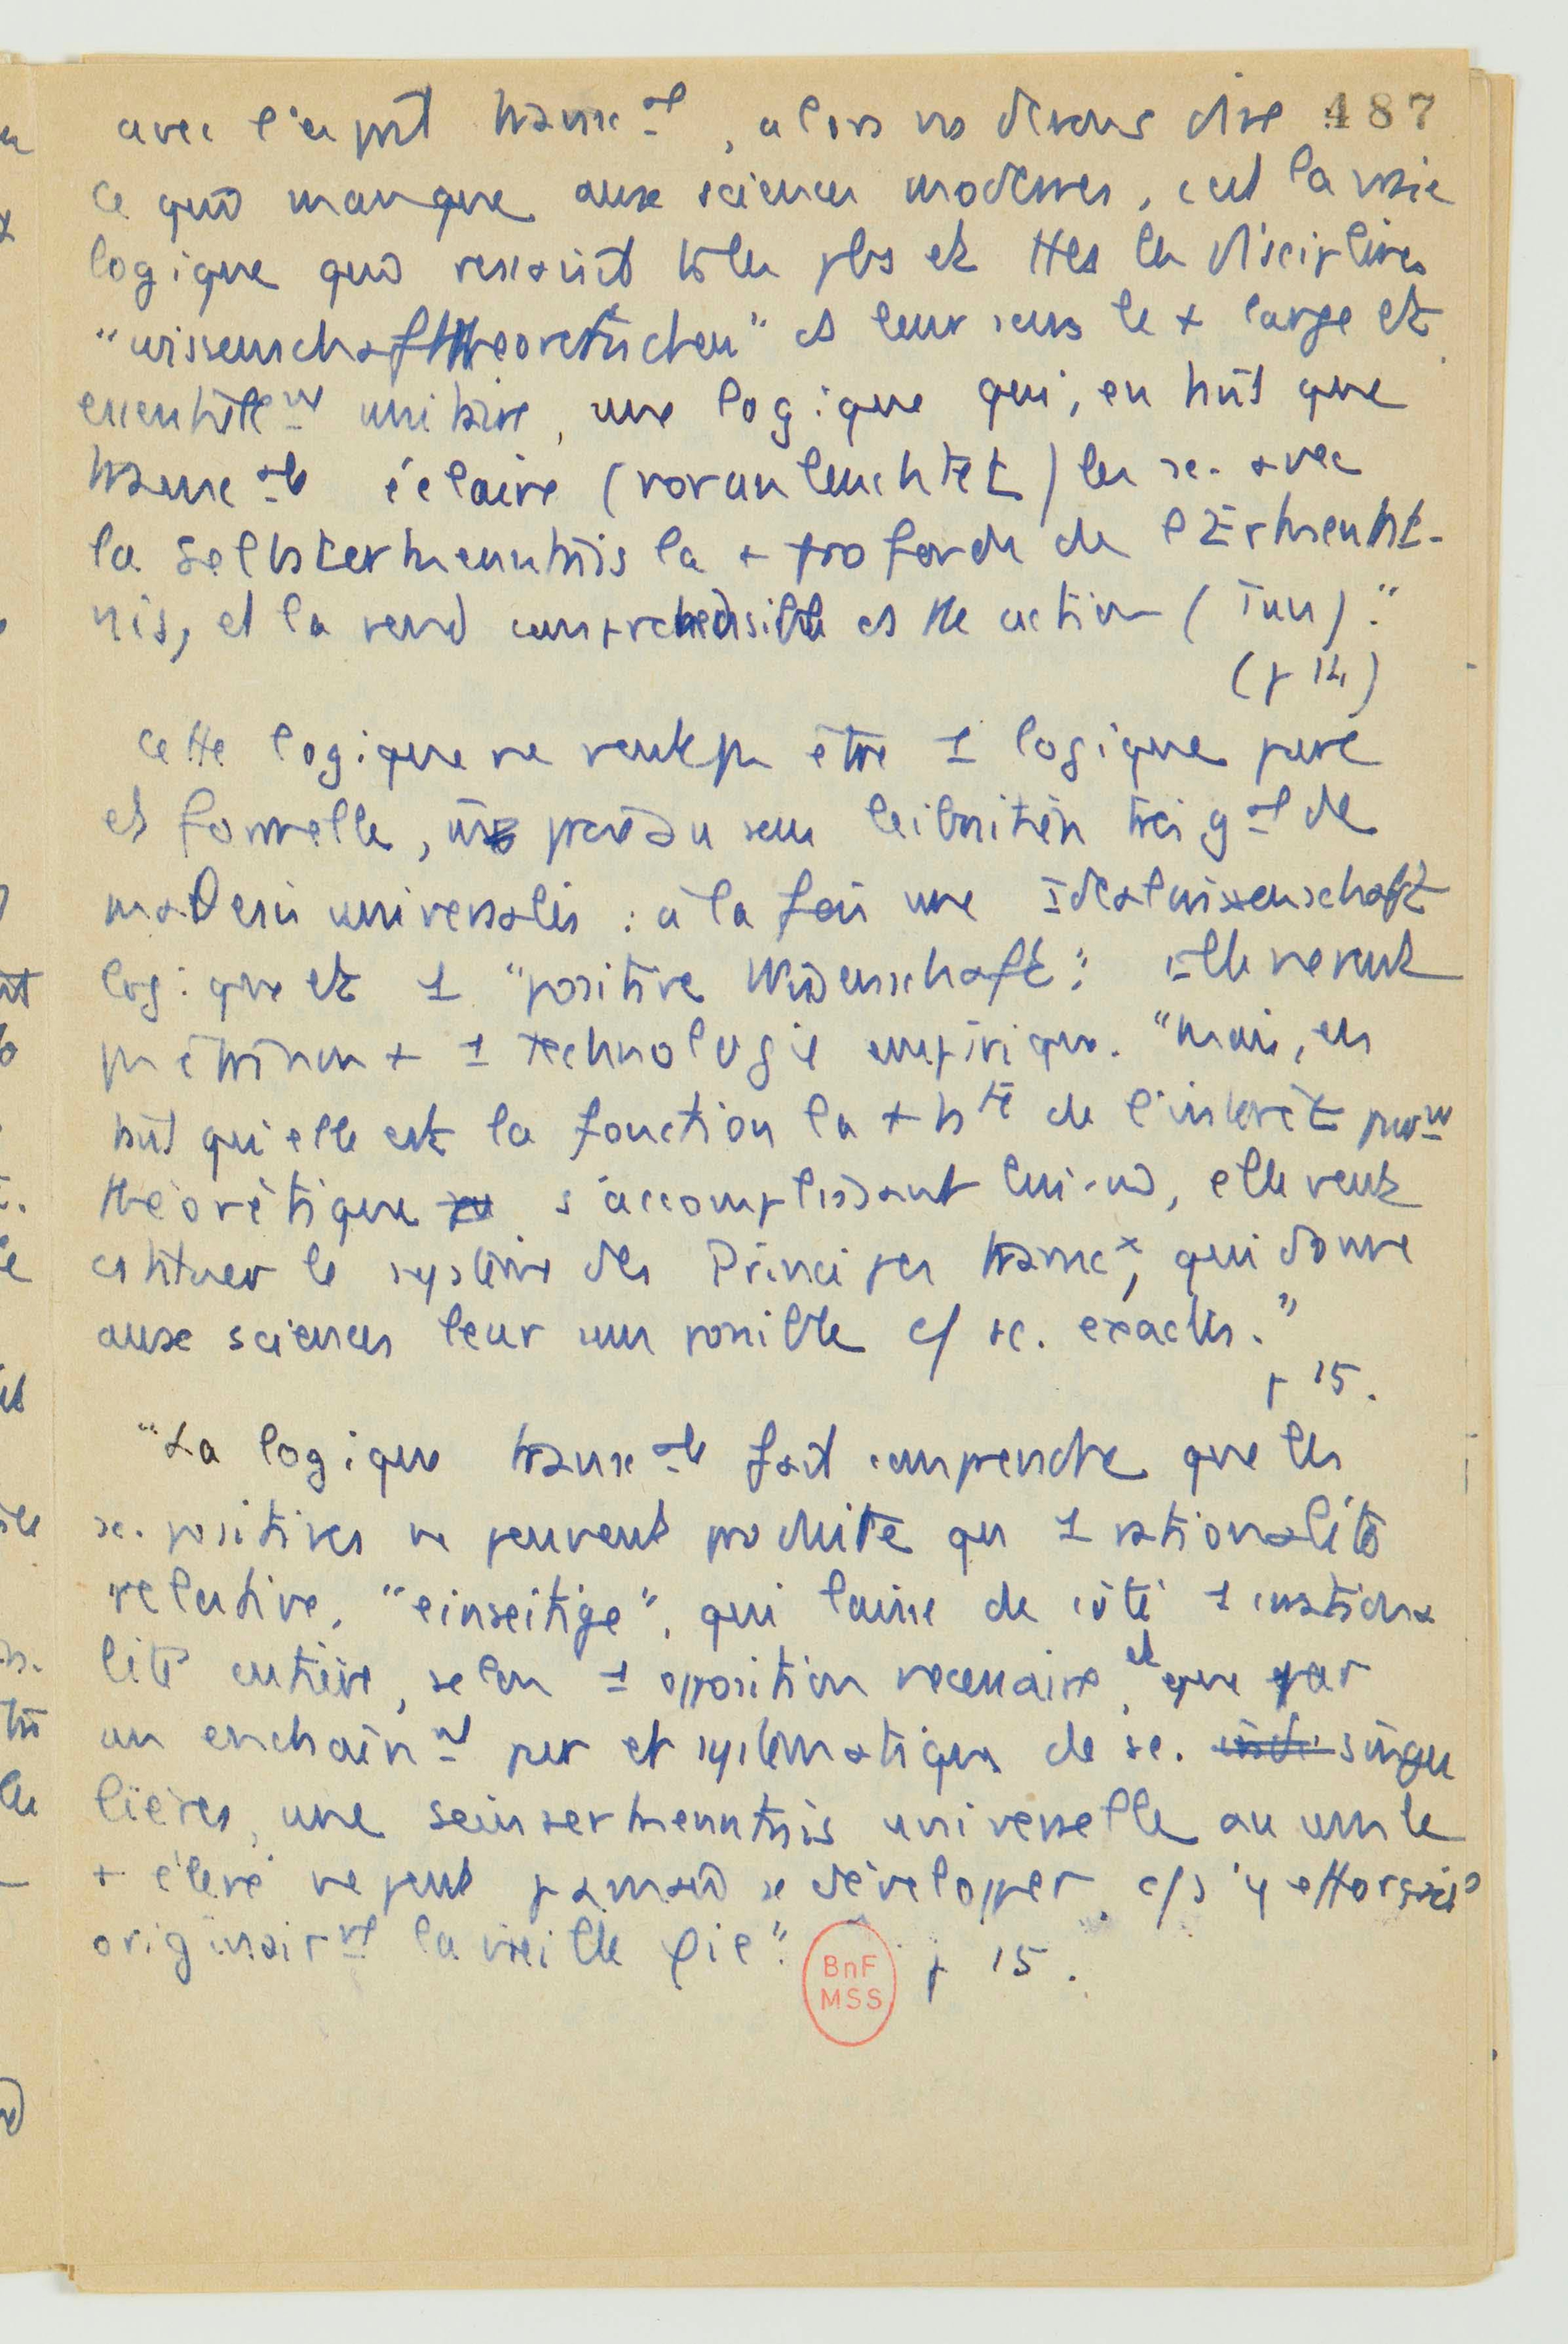 avec l'esprit transc^al, alors ns devons dire 487
ce qui manque aux sciences modernes, c'est la vraie
logique qui resaisit ts les pbs et ttes les disciplines
"wissenschafttheoretischen" ds leur sens le + large et
essentiellem^nt unitaire, une logique qui, en tant que
transc^ale éclaire (voranleuchtet) les sc. avec
la Selbsterkenntnis la + profonde de l'Erkennt-
nis, et la rend compréhensible ds tte action (Tun)."
(p 14)
Cette logique ne veut pas être 1 logique pure
et formelle, prise au sens leibnitien très g^al de
mathesis universalis : à la fois une Idealwissenschaft
logique et 1 "positive Wissenschaft". Elle ne veut
pas être non + 1 technologie empirique. "Mais, en
tant qu'elle est la fonction la + h^te de l'intérêt purem^nt
théorétique s'accomplissant lui-m̂, elle veut
cstituer le système des Principes transc^x, qui donne
aux sciences leur sens possible c/ sc. exactes."
p 15.
"La logique transc^ale fait comprendre que les
sc. positives ne peuvent produire qu 1 rationalité
relative, "einseitige", qui laisse de côté 1 irrationa
lité entière, selon 1 opposition nécessaire, et que par
un enchaîn^nt pur et systématique de sc. singu
lières, une seinserkenntnis universelle au sens le
+ élevé ne peut jamais se développer, c/ s'y efforçait
originair^nt la vieille φie". p 15.
BnF
MSS